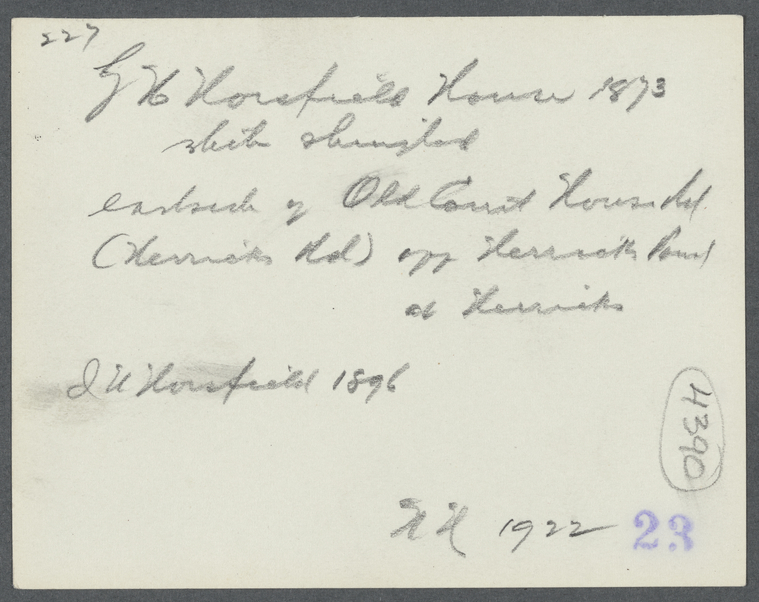 227
G H Horsfield House 1873
white shingled
eastside of Old Court House Rd
(Herricks Rd) opp Herricks Pond
at Herricks
I U Horsfield 1896
4390
1922 23